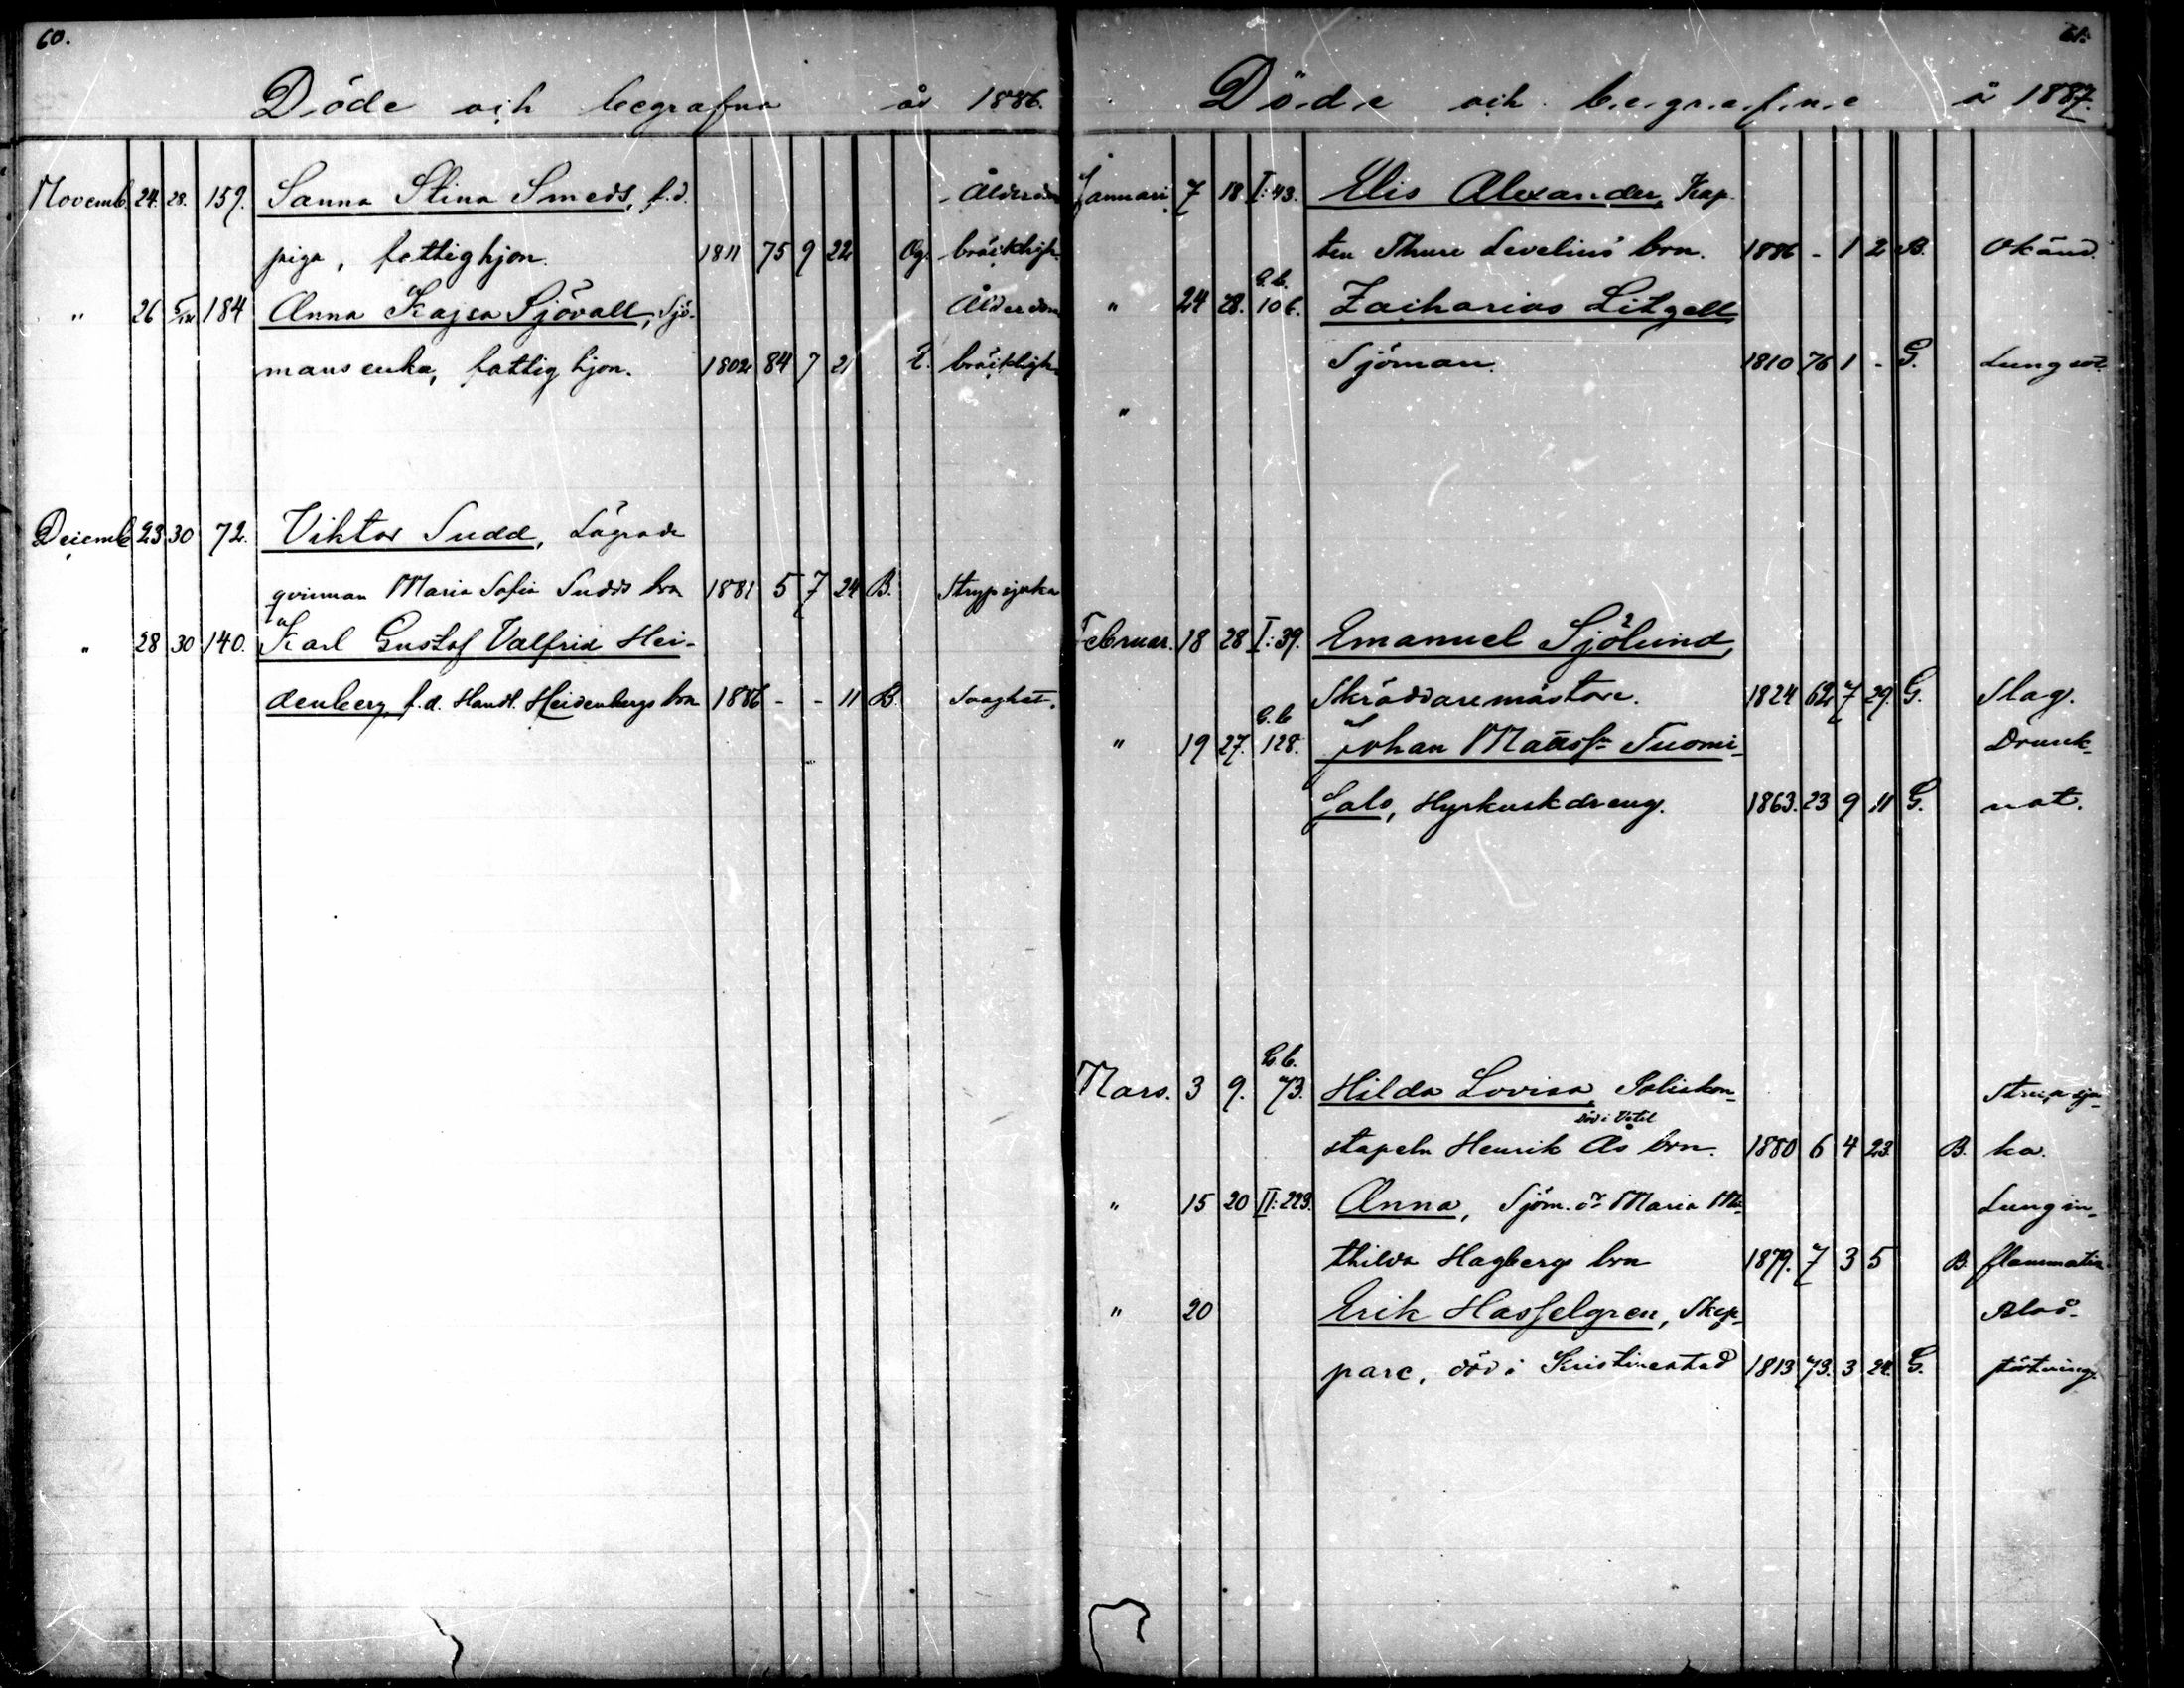 60.
Döde och begrafna år 1886.
Novemb. 24. 28. 159. Sanna Stina Smeds, f.d. Ålderdoms
piga, fattighjon. 1811 75 9 22 Og. bräcklighet
" 26 5/XII 184 Anna Kajsa Sjövall, Sjö- Ålderdoms
mansenka, fattighjon. 1802 84 7 21 E. bräcklighet
Decemb. 23 30 72. Viktor Sudd, Lägrade
qvinnan Maria Sofia Sudds brn 1881 5 7 24 B. Strypsjuka
" 28 30 140. Karl Gustaf Valfrid Hei-
denberg, f.d. Handl. Heidenbergs brn 1886 - - 11 B. Svaghet.
61.
Döde och begrafne år 1887.
Januari 7 18 I:43. Elis Alexander, Kap-
ten Thure Levelius brn. 1886 - 1 2 B. Okänd.
" 24 28. G.b. 106. Zacharias Litzell,
Sjöman. 1810 76 1 - G. Lungsot.
"
Februar. 18 28 I:39. Emanuel Sjölund,
Skräddaremästare. 1824 62 7 29. G. Slag.
" 19 27. G.b. 128. Johan Mattss: Tuomi- Drunk-
salo, Hyrkuskdreng. 1863. 23 9 11 G. nat.
Mars. 3 9. G.b. 73. Hilda Lovisa, Poliskon- Strupsju-
död i Vetil
stapeln Henrik Ås brn. 1880 6 4 23. B. ka.
" 15 20 II:223. Anna, Sjöm. o. Maria Ma- Lungin-
thilda Hagbergs brn 1879. 7 3 5 B. flammation
" 20 Erik Hasselgren, Skep- Blod-
pare, död i Kristinestad 1813 73. 3 24. G. störtning.